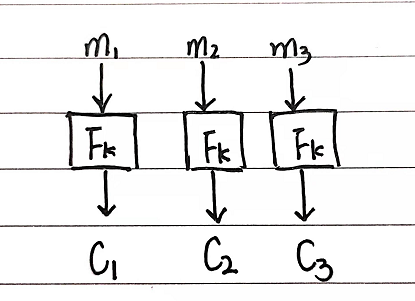 m₁ m₂ m₃
Fk Fk Fk
C₁ C₂ C₃